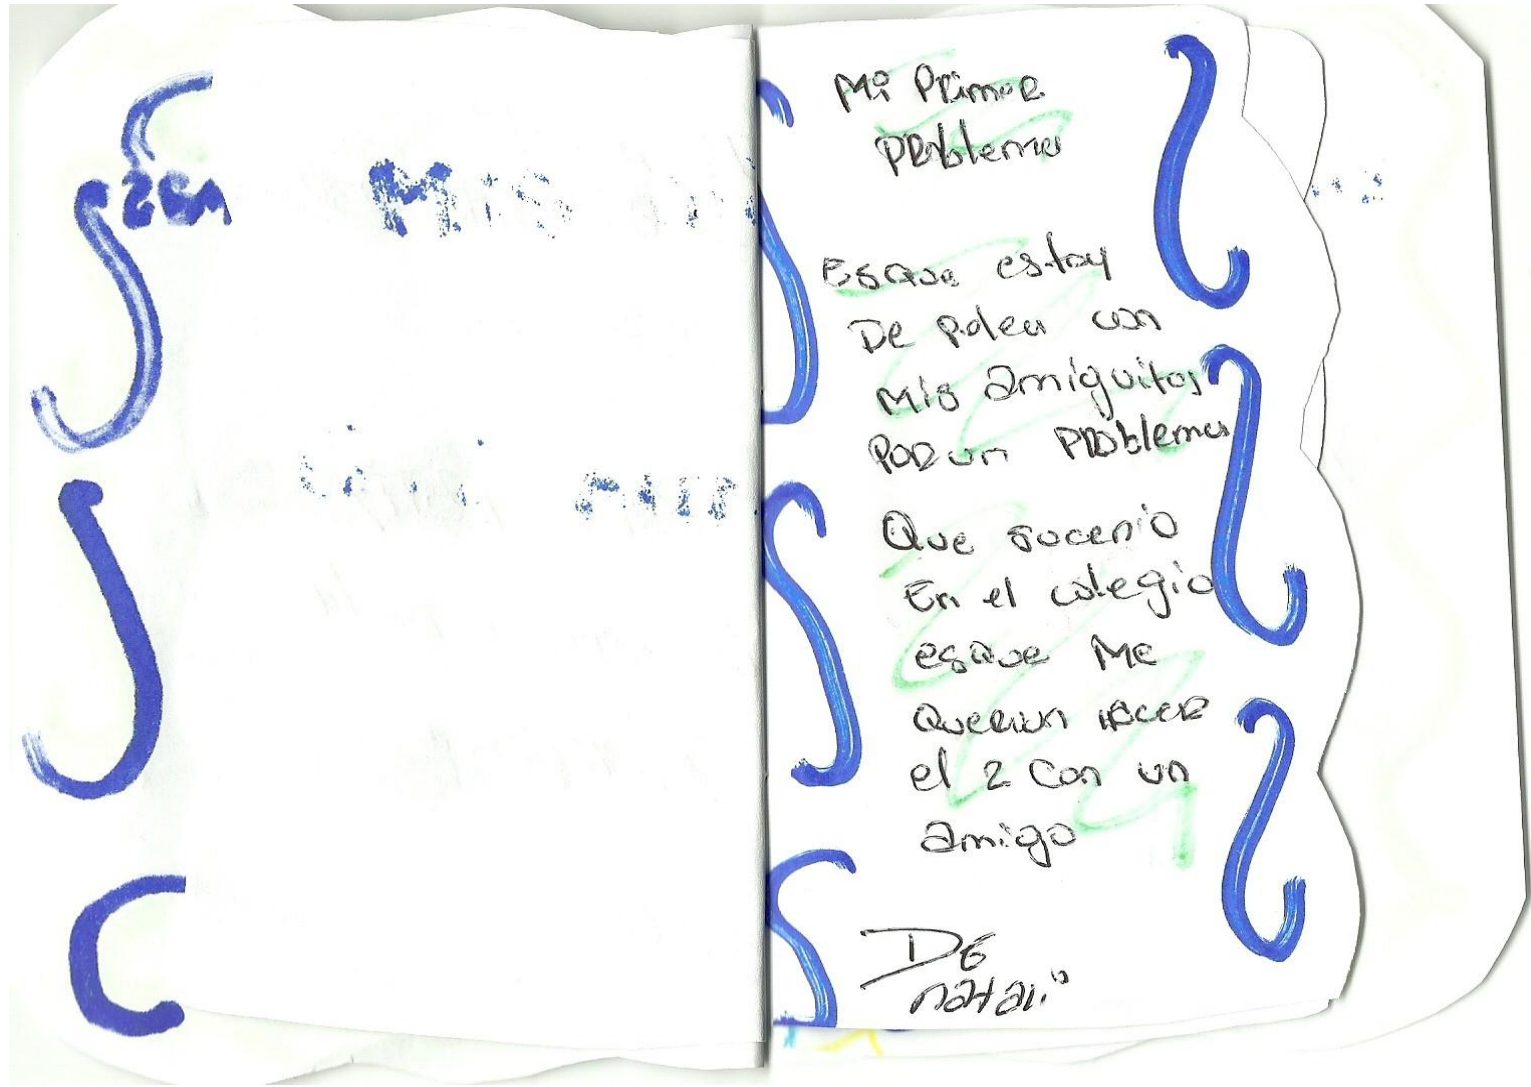 Mis
Mi Primer
Problema
Esque estoy
De pelea con
Mis amiguitos
Por un Problema
Que sucenio
En el colegio
esque Me
Querian Hacer
el 2 Con un
amigo
De
natali